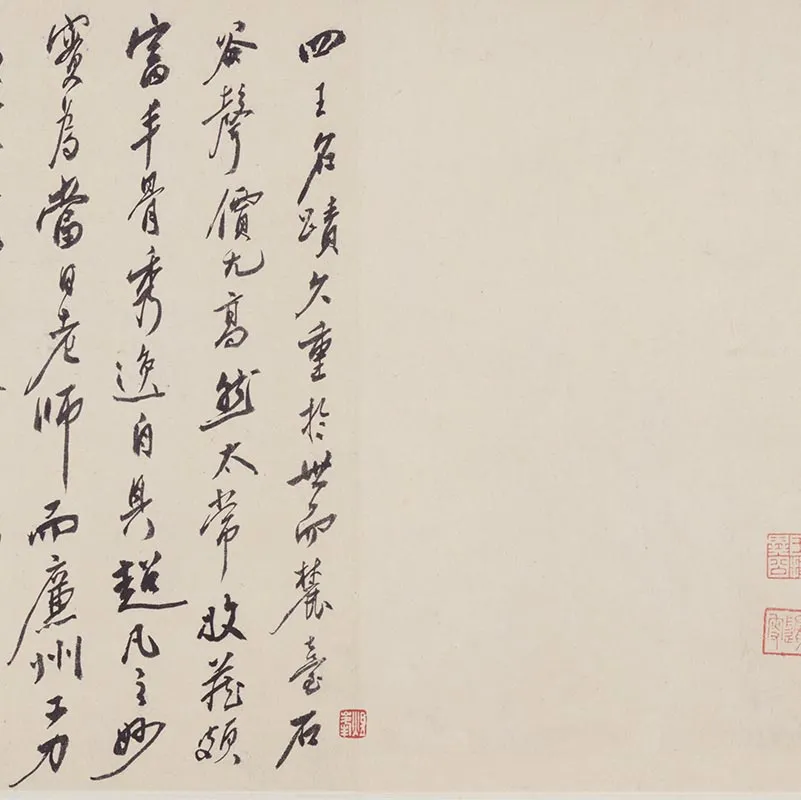 四王名蹟久重於世而麓臺石
谷聲價尤高然太常收藏頗
富丰骨秀逸自具超凡之妙
實為當日老師而廉州工力